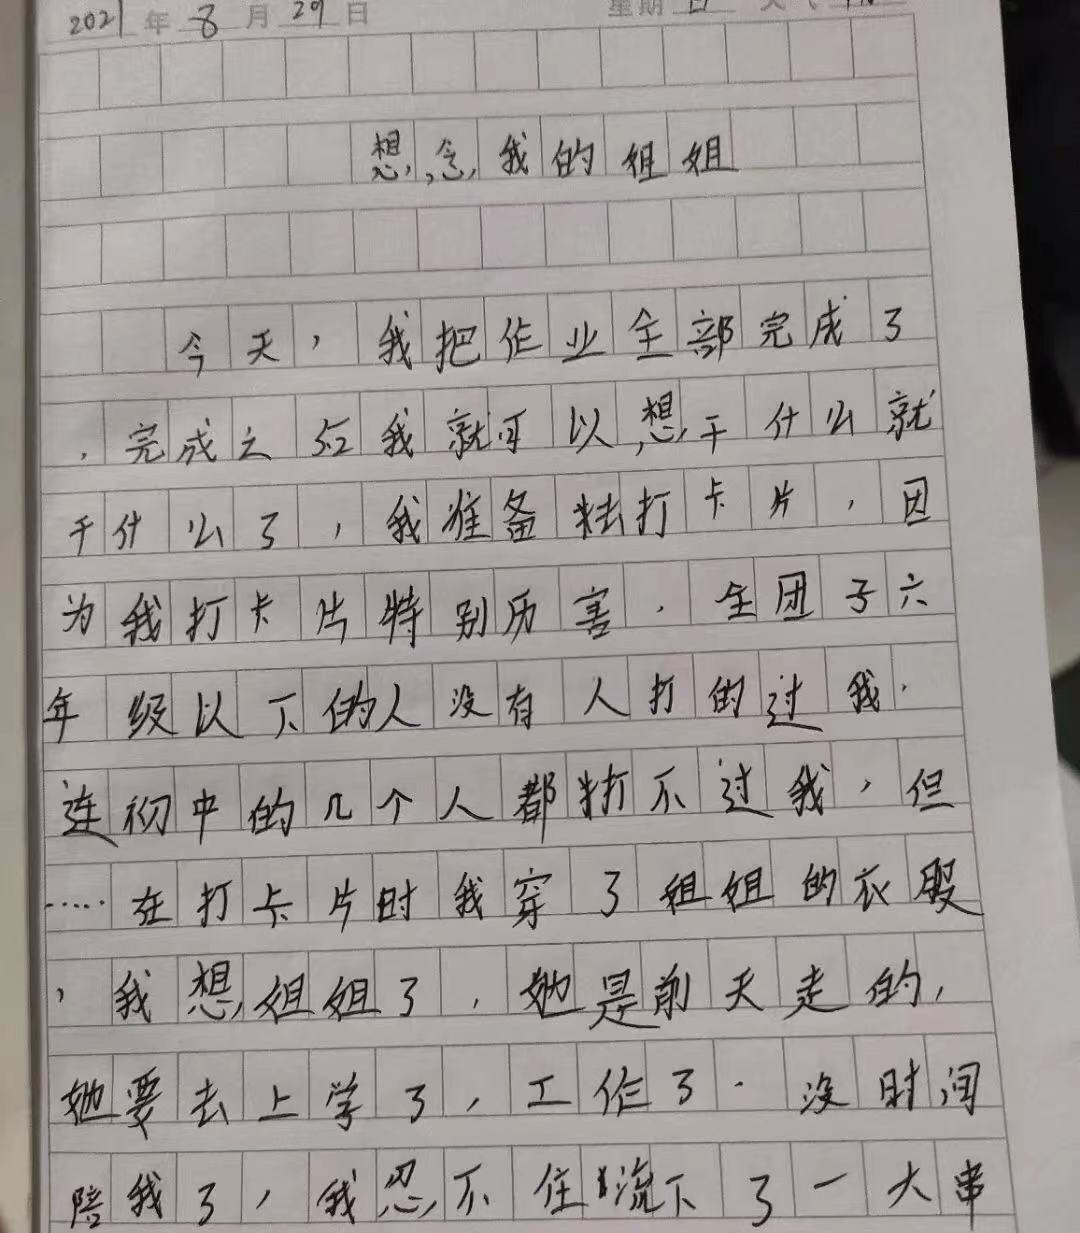 2021年8月29日 星期日 天气
想念我的姐姐
今天，我把作业全部完成了
，完成之后我就可以想干什么就
干什么了，我准备去打卡片，因
为我打卡片特别历害．全团子六
年级以下的人没有人打的过我．
连初中的几个人都打不过我，但
……在打卡片时我穿了姐姐的衣服
，我想姐姐了．她是前天走的，
她要去上学了，工作了．没时间
陪我了，我忍不住流下了一大串